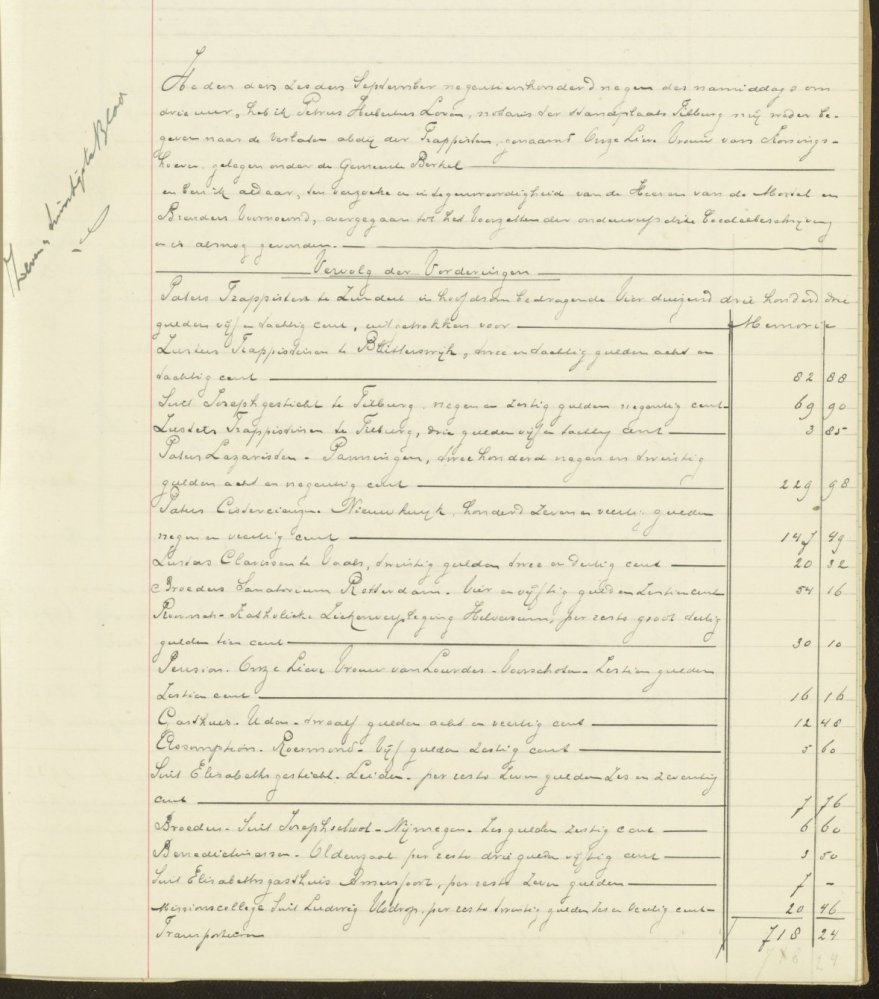 Zeven & twintigste Blad
Heden den zesden September negentienhonderd negen des namiddags om
drie uur, heb ik Petrus Hubertus Loven, notaris ter standplaats Tilburg mij weder be-
geven naar de verlaten abdij der Trappisten, genaamd Onze Lieve Vrouw van Konings-
hoeven, gelegen onder de Gemeente Berkel
en ben ik aldaar, ten verzoeke en in tegenwoordigheid van de Heeren van de Mortel en
Brenders voornoemd, overgegaan tot het voorzetten der onderwerpelijke boedelbeschrijving
en is alsnog gevonden.
Vervolg der Vorderingen
Paters Trappisten te Zundert in hoofdsom bedragende vier duizend drie honderd drie
gulden vijf en tachtig cent, uitgetrokken voor Memorie
Zusters Trappistinen te Blitterswijk, twee en tachtig gulden acht en
tachtig cent 82 88
Sint Josephgesticht te Tilburg, negen en zestig gulden negentig cent 69 90
Zusters Trappistinen te Tilburg, drie gulden vijf en tachtig cent 3 85
Paters Lazaristen - Panningen, twee honderd negen en twintig
gulden acht en negentig cent 229 98
Paters Cistercienzen Nieuwkuyk, honderd zeven en veertig gulden
negen en veertig cent 147 49
Zusters Clarissen te Vaals, twintig gulden twee en dertig cent 20 32
Broeders Sanatorium Rotterdam. vier en vijftig gulden zestien cent 54 16
Roomsch-Katholieke Ziekenverpleging Hilversum, per resto groot dertig
gulden tien cent 30 10
Pension. Onze Lieve Vrouw van Lourdes - Voorschoten - zestien gulden
zestien cent 16 16
Gasthuis. Uden - twaalf gulden acht en veertig cent 12 48
Assomption. Roermond - vijf gulden zestig cent 5 60
Sint Elisabethsgesticht. Leiden. per resto zeven gulden zes en zeventig
cent 7 76
Broeders - Sint Josephschool - Nijmegen - zes gulden zestig cent 6 60
Benedictinessen - Oldenzaal per resto drie gulden vijftig cent 3 50
Sint Elisabethsgasthuis Amersfoort, per resto zeven gulden 7 -
Missiecollege Sint Ludwig Vlodrop, per resto twintig gulden zes en veertig cent 20 46
Transporteeren 718 24
718 24